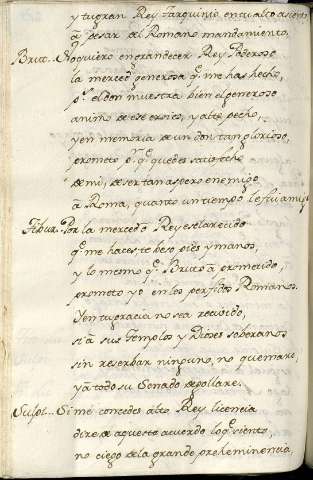 y tu gran Rey Tarquinio en tu alto asiento
à pesar del Romano mandamiento.
Brut.. No quiero engrandecer Rey Poderoso
la merced generosa q.e me has hecho,
p.s el don muestra bien el generoso
animo de ese eroico, y alto pecho,
y en memoria de un don tan glorioso,
prometo p.r q.e quedes satisfecho
de mi, de ser tan aspero enemigo
à Roma, quanto un tiempo le fui amigo
Tibur. Por la merced ò Rey esclarecido
q.e me haces, te beso pies y manos,
y lo mismo q.e Bruto à prometido,
prometo yo en los perfidos Romanos.
Y en tu gracia no sea recivido,
si à sus Templos y Dioses soberanos
sin reserbar ninguno, no quemare,
y à todo su Senado despoblare.
Sulpi... Si me concedes alto Rey licencia
dire de aqueste acuerdo lo q.e siento,
no ciego de la grande preheminencia